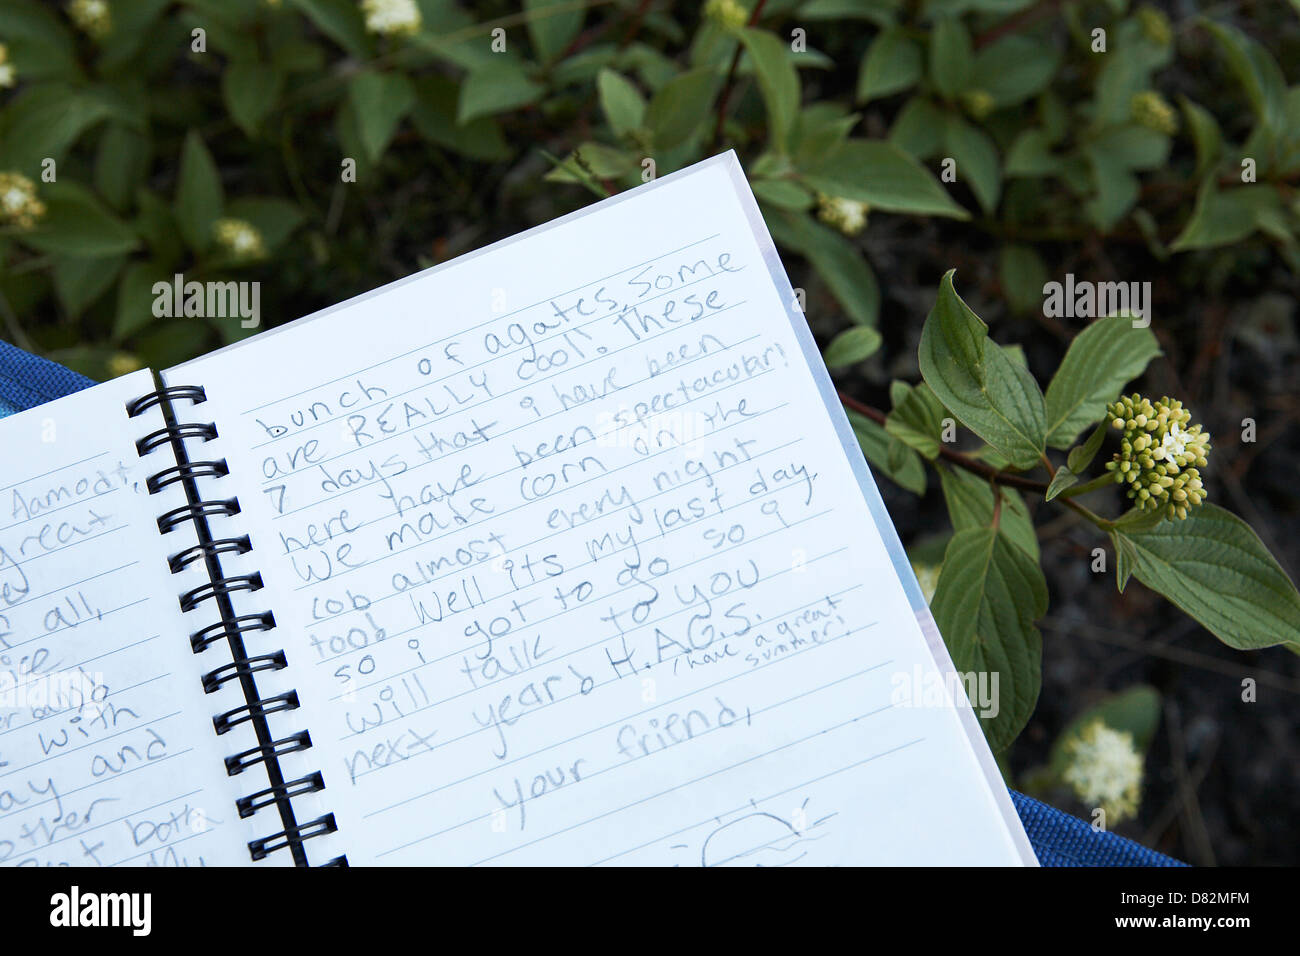 Aamodt,
great
all,
with
ay and
other
both
bunch of agates, some
are REALLY cool. These
7 days that i have been
here have been spectacular!
We made corn on the
cob almost every night
too! Well its my last day,
so i got to go so i
will talk to you
next year! H.A.G.S.
(have a great
summer!
your friend,
alamy
alamy
Image ID: D82MFM
www.alamy.com